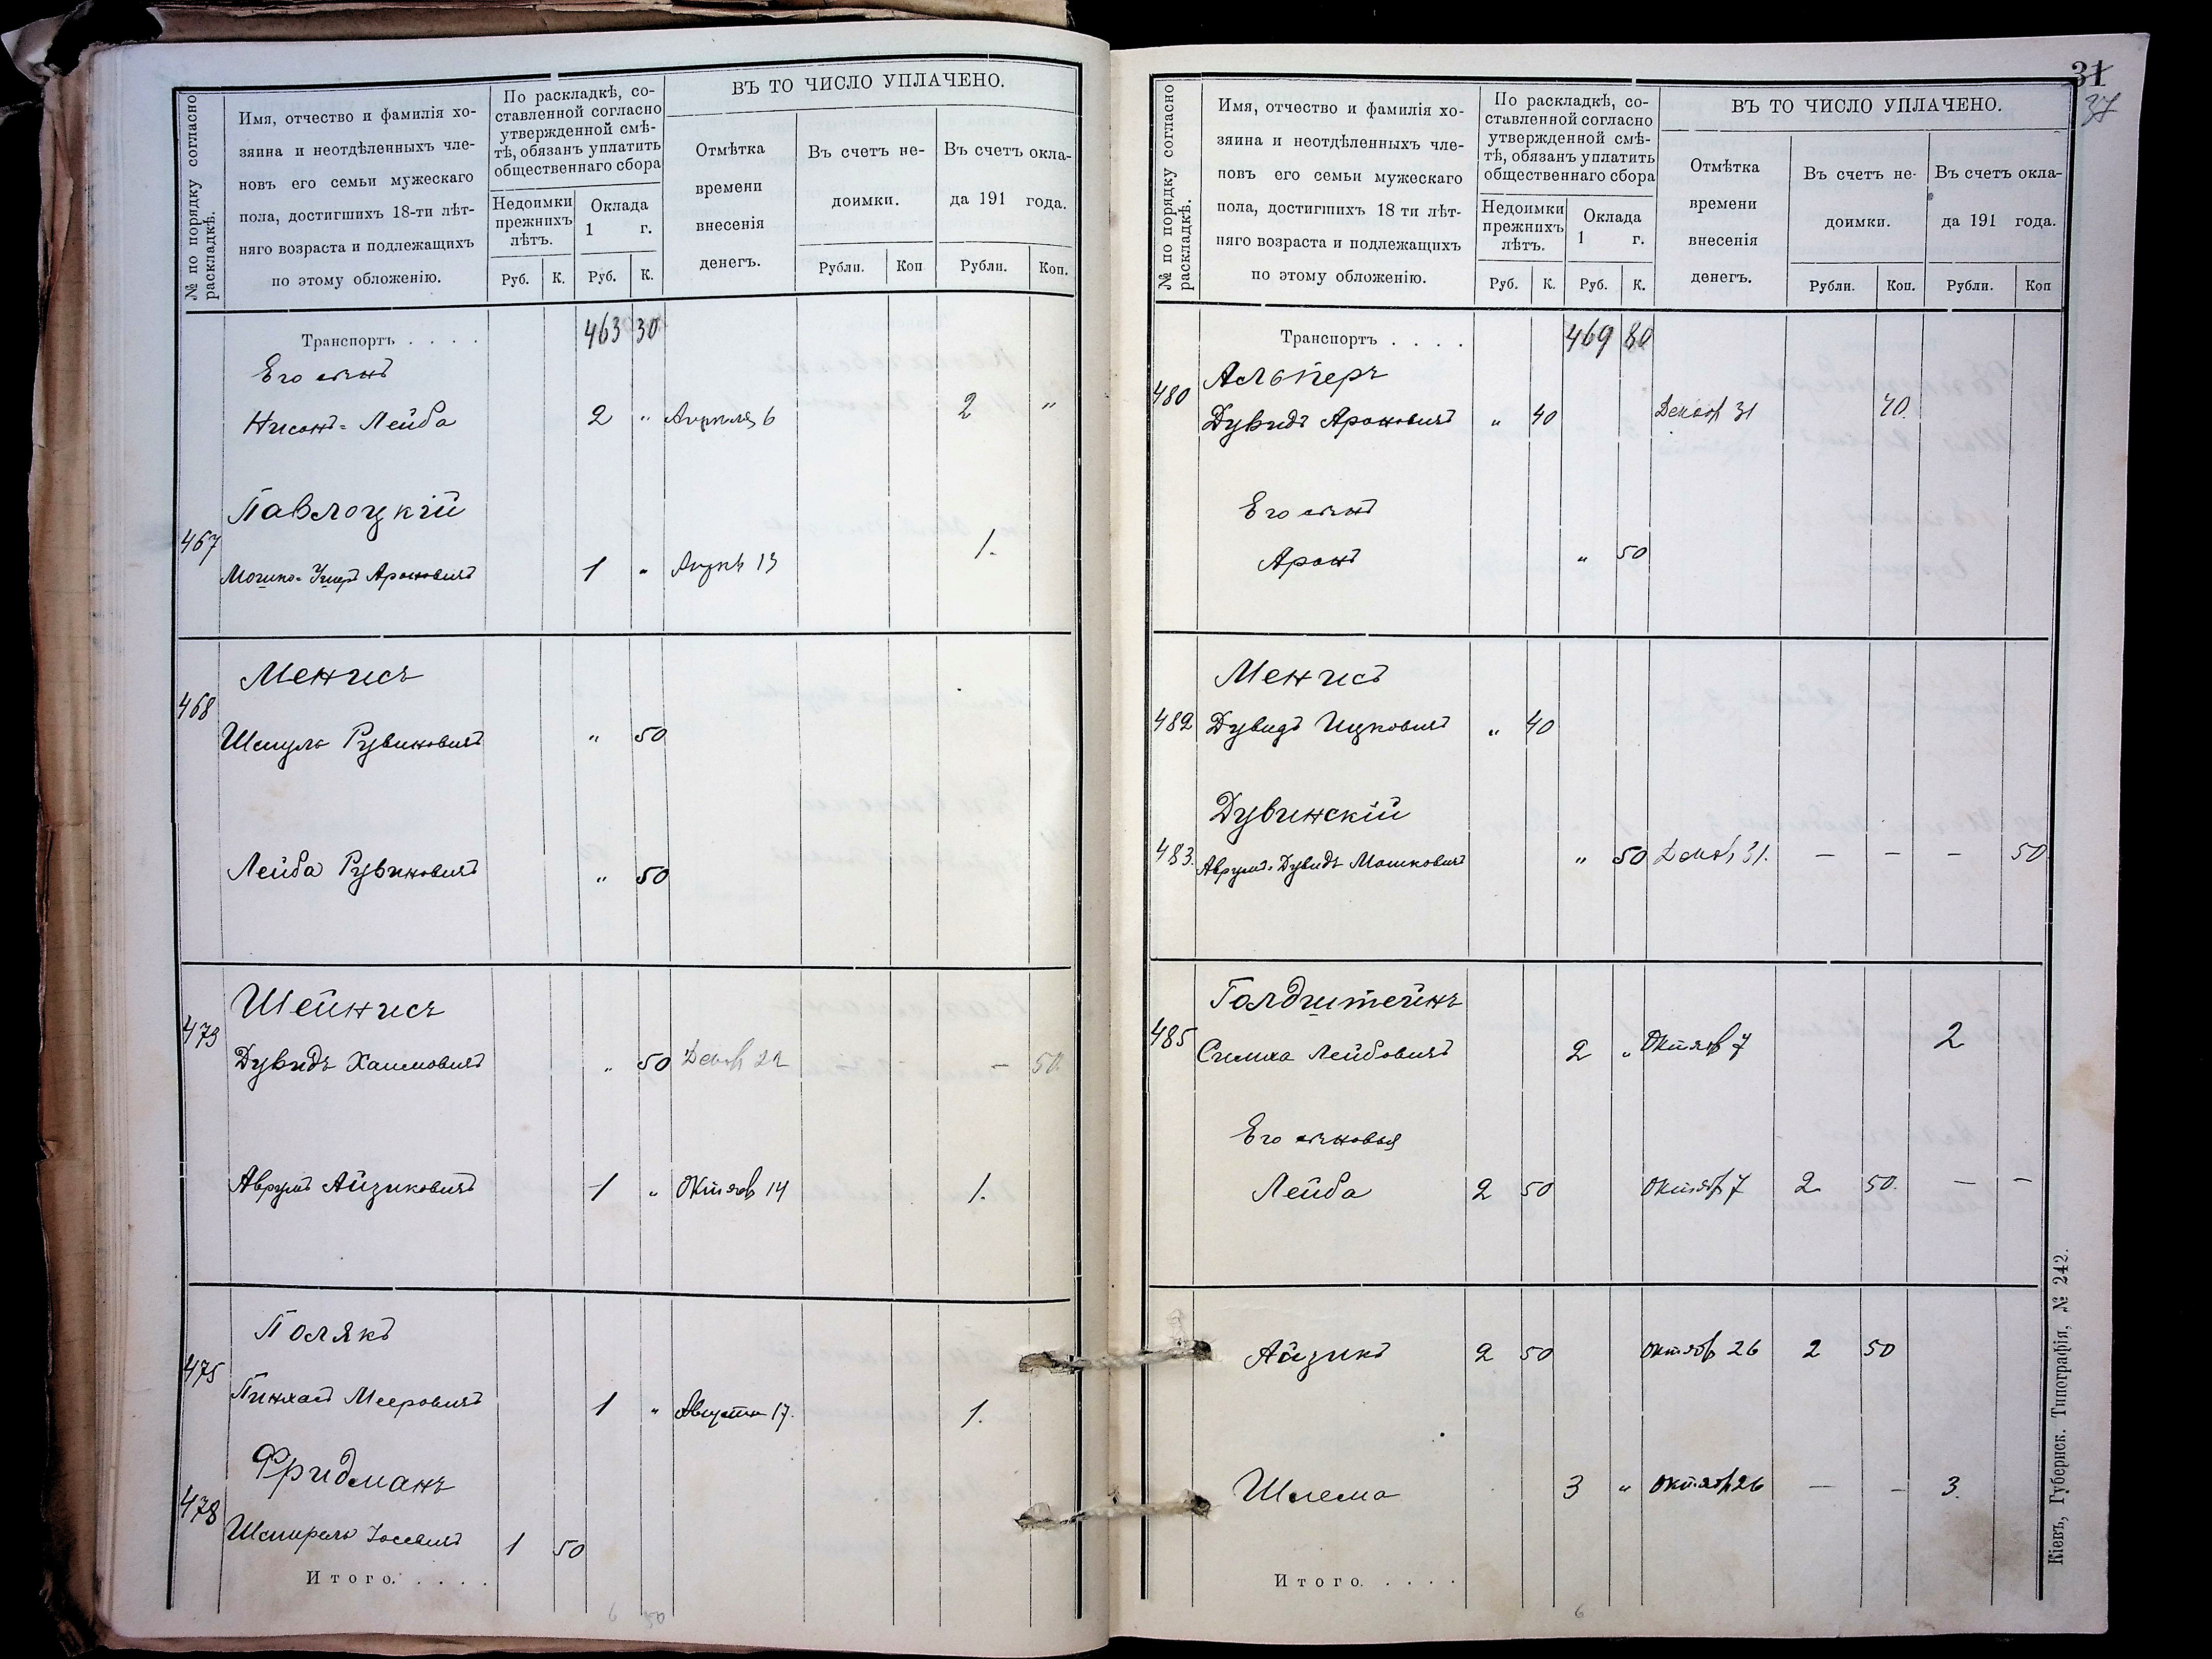 № по порядку согласно раскладкѣ.
Имя, отчество и фамилія хо-
зяина и неотдѣленныхъ чле-
новъ его семьи мужескаго
пола, достигшихъ 18-ти лѣт-
няго возраста и подлежащихъ
по этому обложенію.
По раскладкѣ, со-
ставленной согласно
утвержденной смѣ-
тѣ, обязанъ уплатить
общественнаго сбора
Недоимки
прежнихъ
лѣтъ.
Оклада
1 г.
Руб. К. Руб. К.
ВЪ ТО ЧИСЛО УПЛАЧЕНО.
Отмѣтка
времени
внесенія
денегъ.
Въ счетъ не-
доимки.
Въ счетъ окла-
да 191 года.
Рубли. Коп Рубли. Коп.
Транспортъ . . . . 463 30
Его сынъ
Нисонъ-Лейба 2 " Апрѣля 6 2 "
Павлоцкій
467 Мошко-Ушеръ Ароновичъ 1 " Апрѣ 13 1.
Менисъ
468 Шмуль Рувиновичъ " 50
Лейба Рувиновичъ " 50
Шейнисъ
473 Дувидъ Хаимовичъ " 50 Декаб 22 — 50
Аврумъ Айзиковичъ 1 " Октяб 14 1.
Полякъ
475 Пинхасъ Мееровичъ 1 " Августа 17. 1.
Фридманъ
478 Шмирель Іосевичъ 1 50
Итого. . . . .
6 50
31
37
№ по порядку согласно раскладкѣ.
Имя, отчество и фамилія хо-
зяина и неотдѣленныхъ чле-
новъ его семьи мужескаго
пола, достигшихъ 18 ти лѣт-
няго возраста и подлежащихъ
по этому обложенію.
По раскладкѣ, со-
ставленной согласно
утвержденной смѣ-
тѣ, обязанъ уплатить
общественнаго сбора
Недоимки
прежнихъ
лѣтъ.
Оклада
1 г.
Руб. К. Руб. К.
ВЪ ТО ЧИСЛО УПЛАЧЕНО.
Отмѣтка
времени
внесенія
денегъ.
Въ счетъ не-
доимки.
Въ счетъ окла-
да 191 года.
Рубли. Коп. Рубли. Коп
Транспортъ . . . . 469 80
Альперъ
480 Дувидъ Ароновичъ " 40 Декаб 31 40.
Его сынъ
Аронъ " 50
Менисъ
482 Дувидъ Ицковичъ " 40
Дувинскій
483. Аврумъ-Дувидъ Мошковичъ " 50 Декаб 31. — — — 50
Голдштейнъ
485 Симха Лейбовичъ 2 " Октяб 7 2
Его сыновья
Лейба 2 50 Октяб 7 2 50. — —
Айзикъ 2 50 Октяб 26 2 50
Шлема 3 " Октяб 26 — — 3.
Итого. . . . .
6
Кіевъ, Губернск. Типографія, № 242.